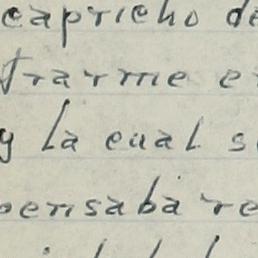 capricho de
trarme e
y la cual s
pensaba re